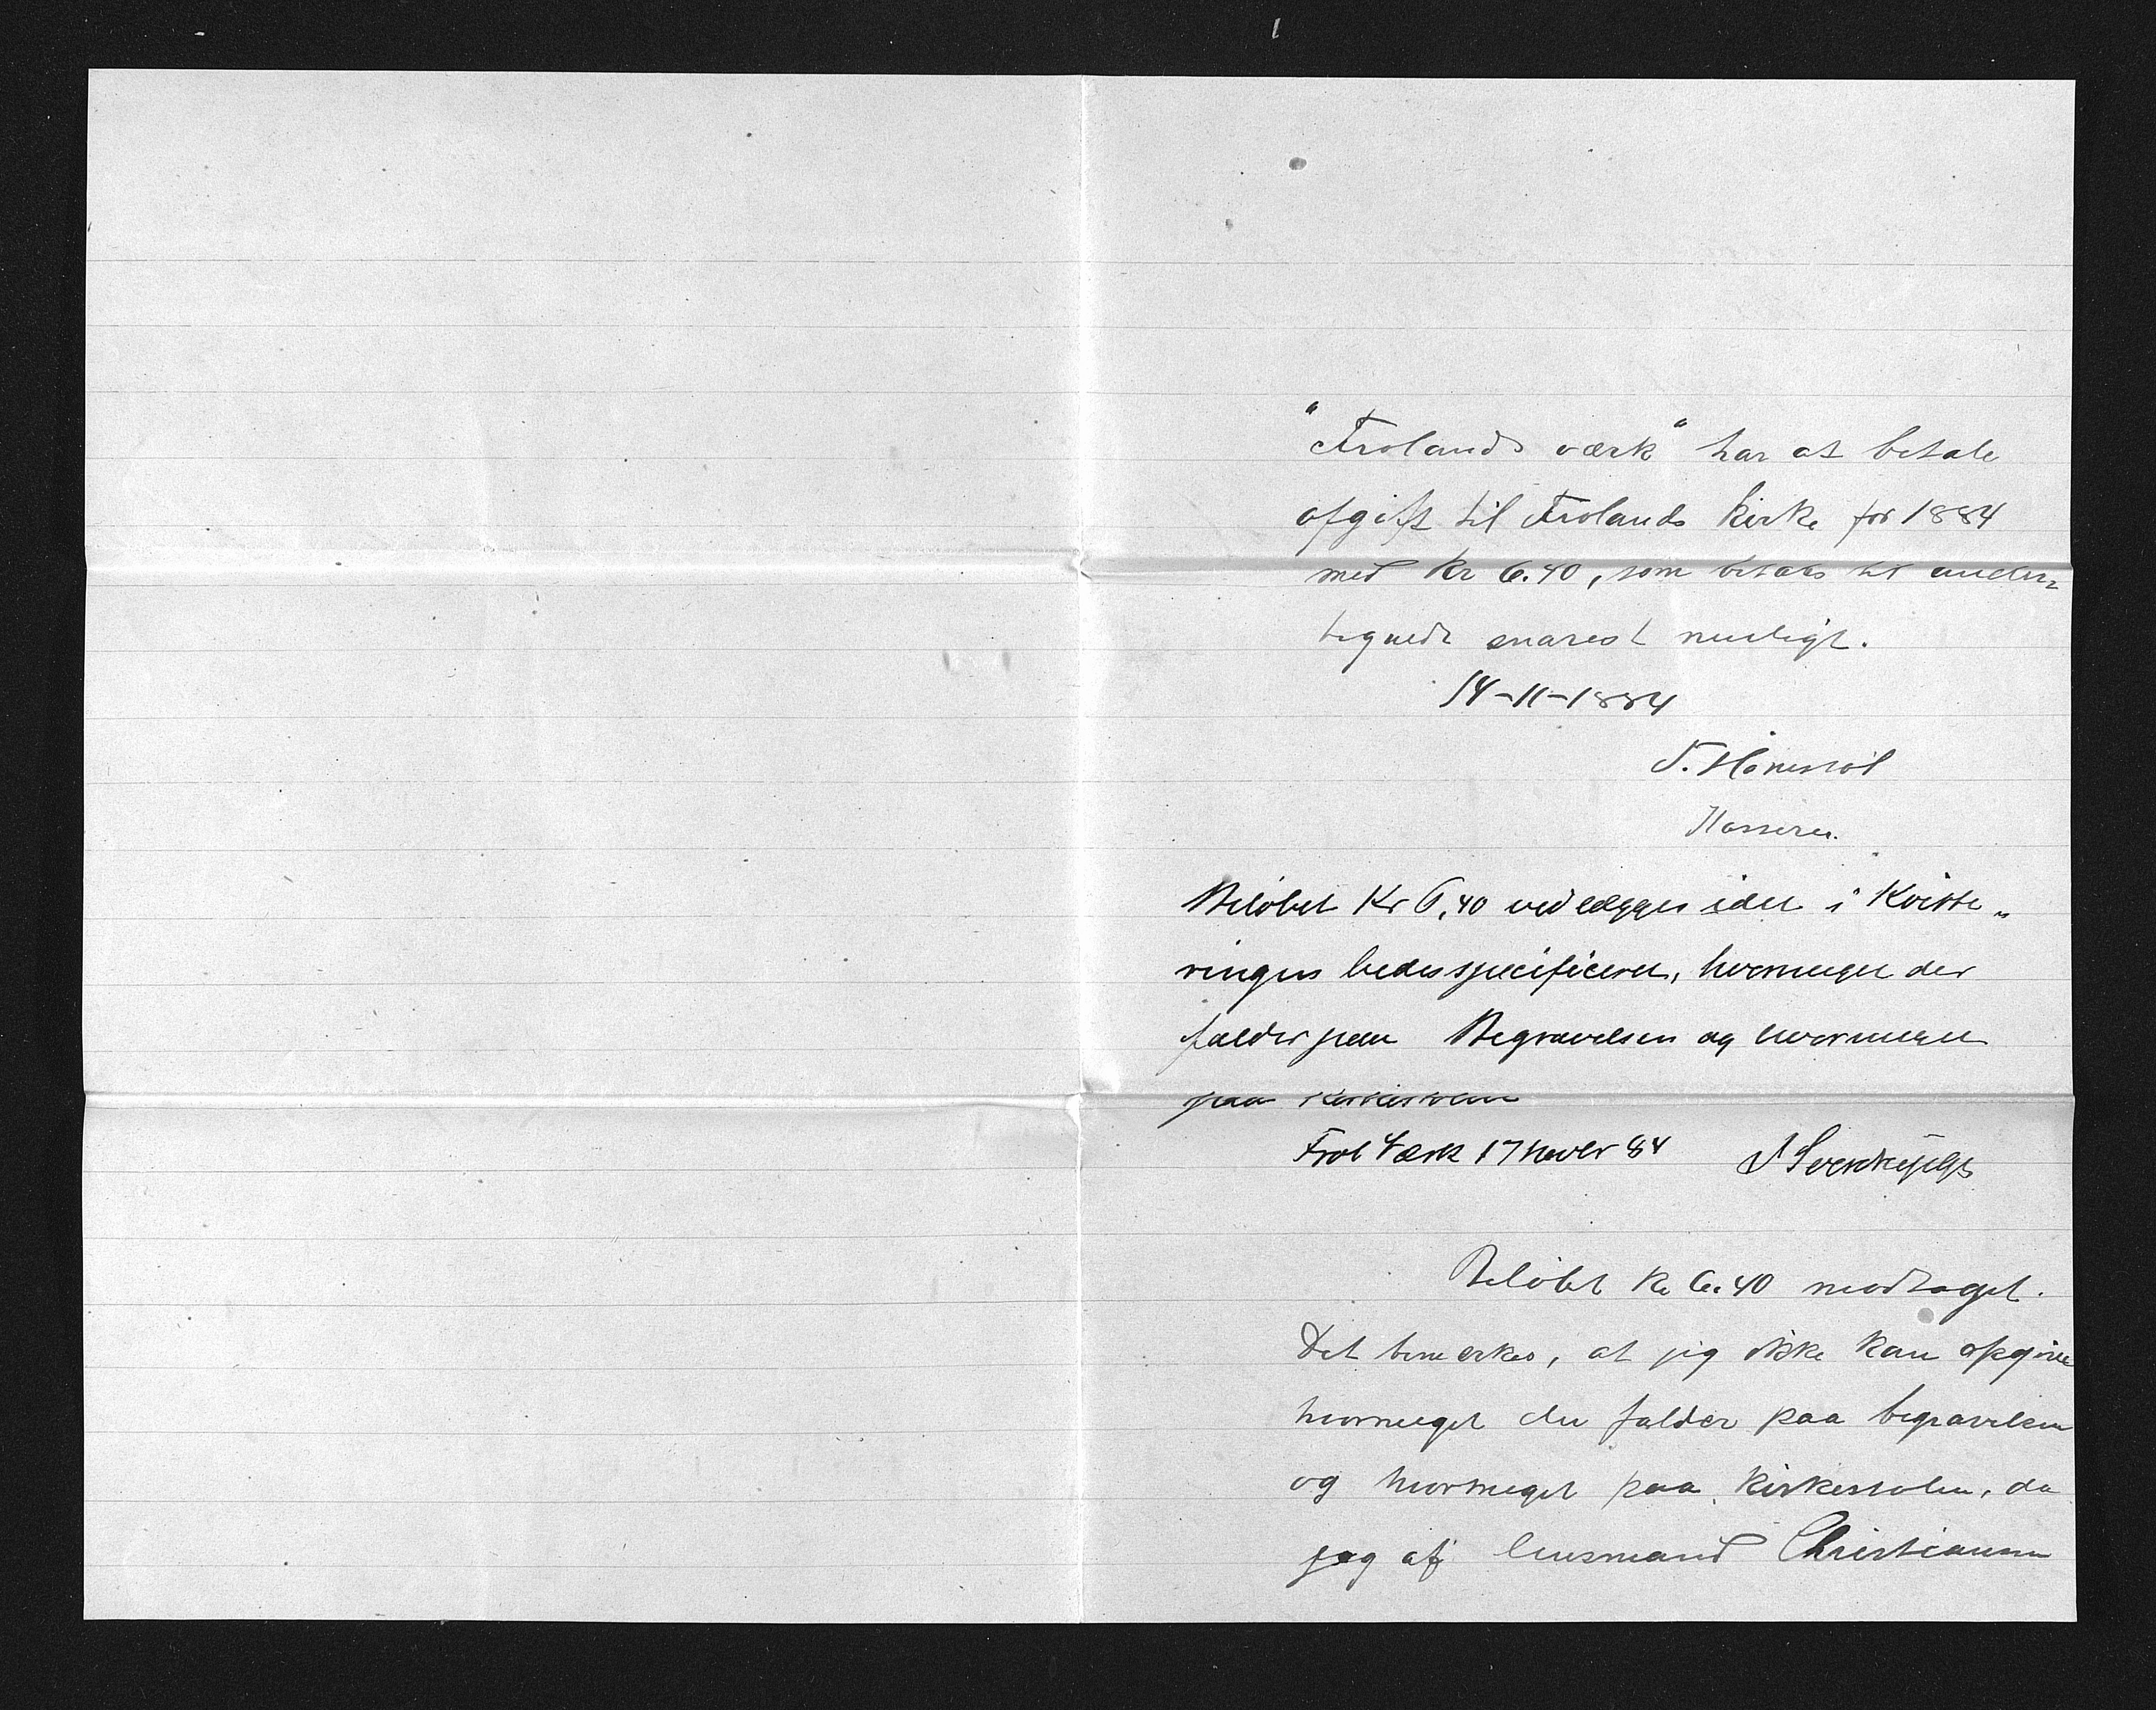 "Frolands værk" har at betale
afgift til Frolands Kirke for 1884
med Kr 6.40, som betales til under-
tegnede snarest muligt.
14-11-1884
Kasserer.
Beløbet Kr 6,40 vedlægges idet i Kvitte„
ringen bedes specificeret, hvormeget der
falder paa Begravelsen og hvormeget
paa Kirkestolen
Frol Værk 17 Novbr 84
Beløbet Kr 6.40 modtaget.
Det bemerkes, at jeg ikke kan opgive
hvormeget der falder paa begravelsen
og hvormeget paa kirkestolen, da
jeg af lensmand Christiansen